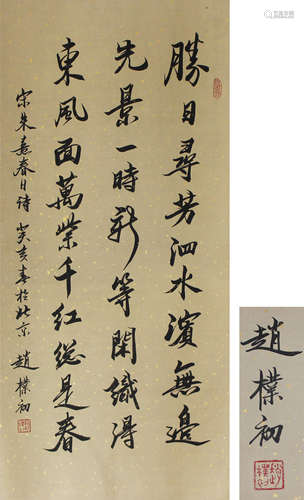 勝日尋芳泗水濱無邊
光景一時新等閑識得
東風面萬紫千紅總是春
宋朱熹春日詩 癸亥春於北京 趙樸初
趙樸初